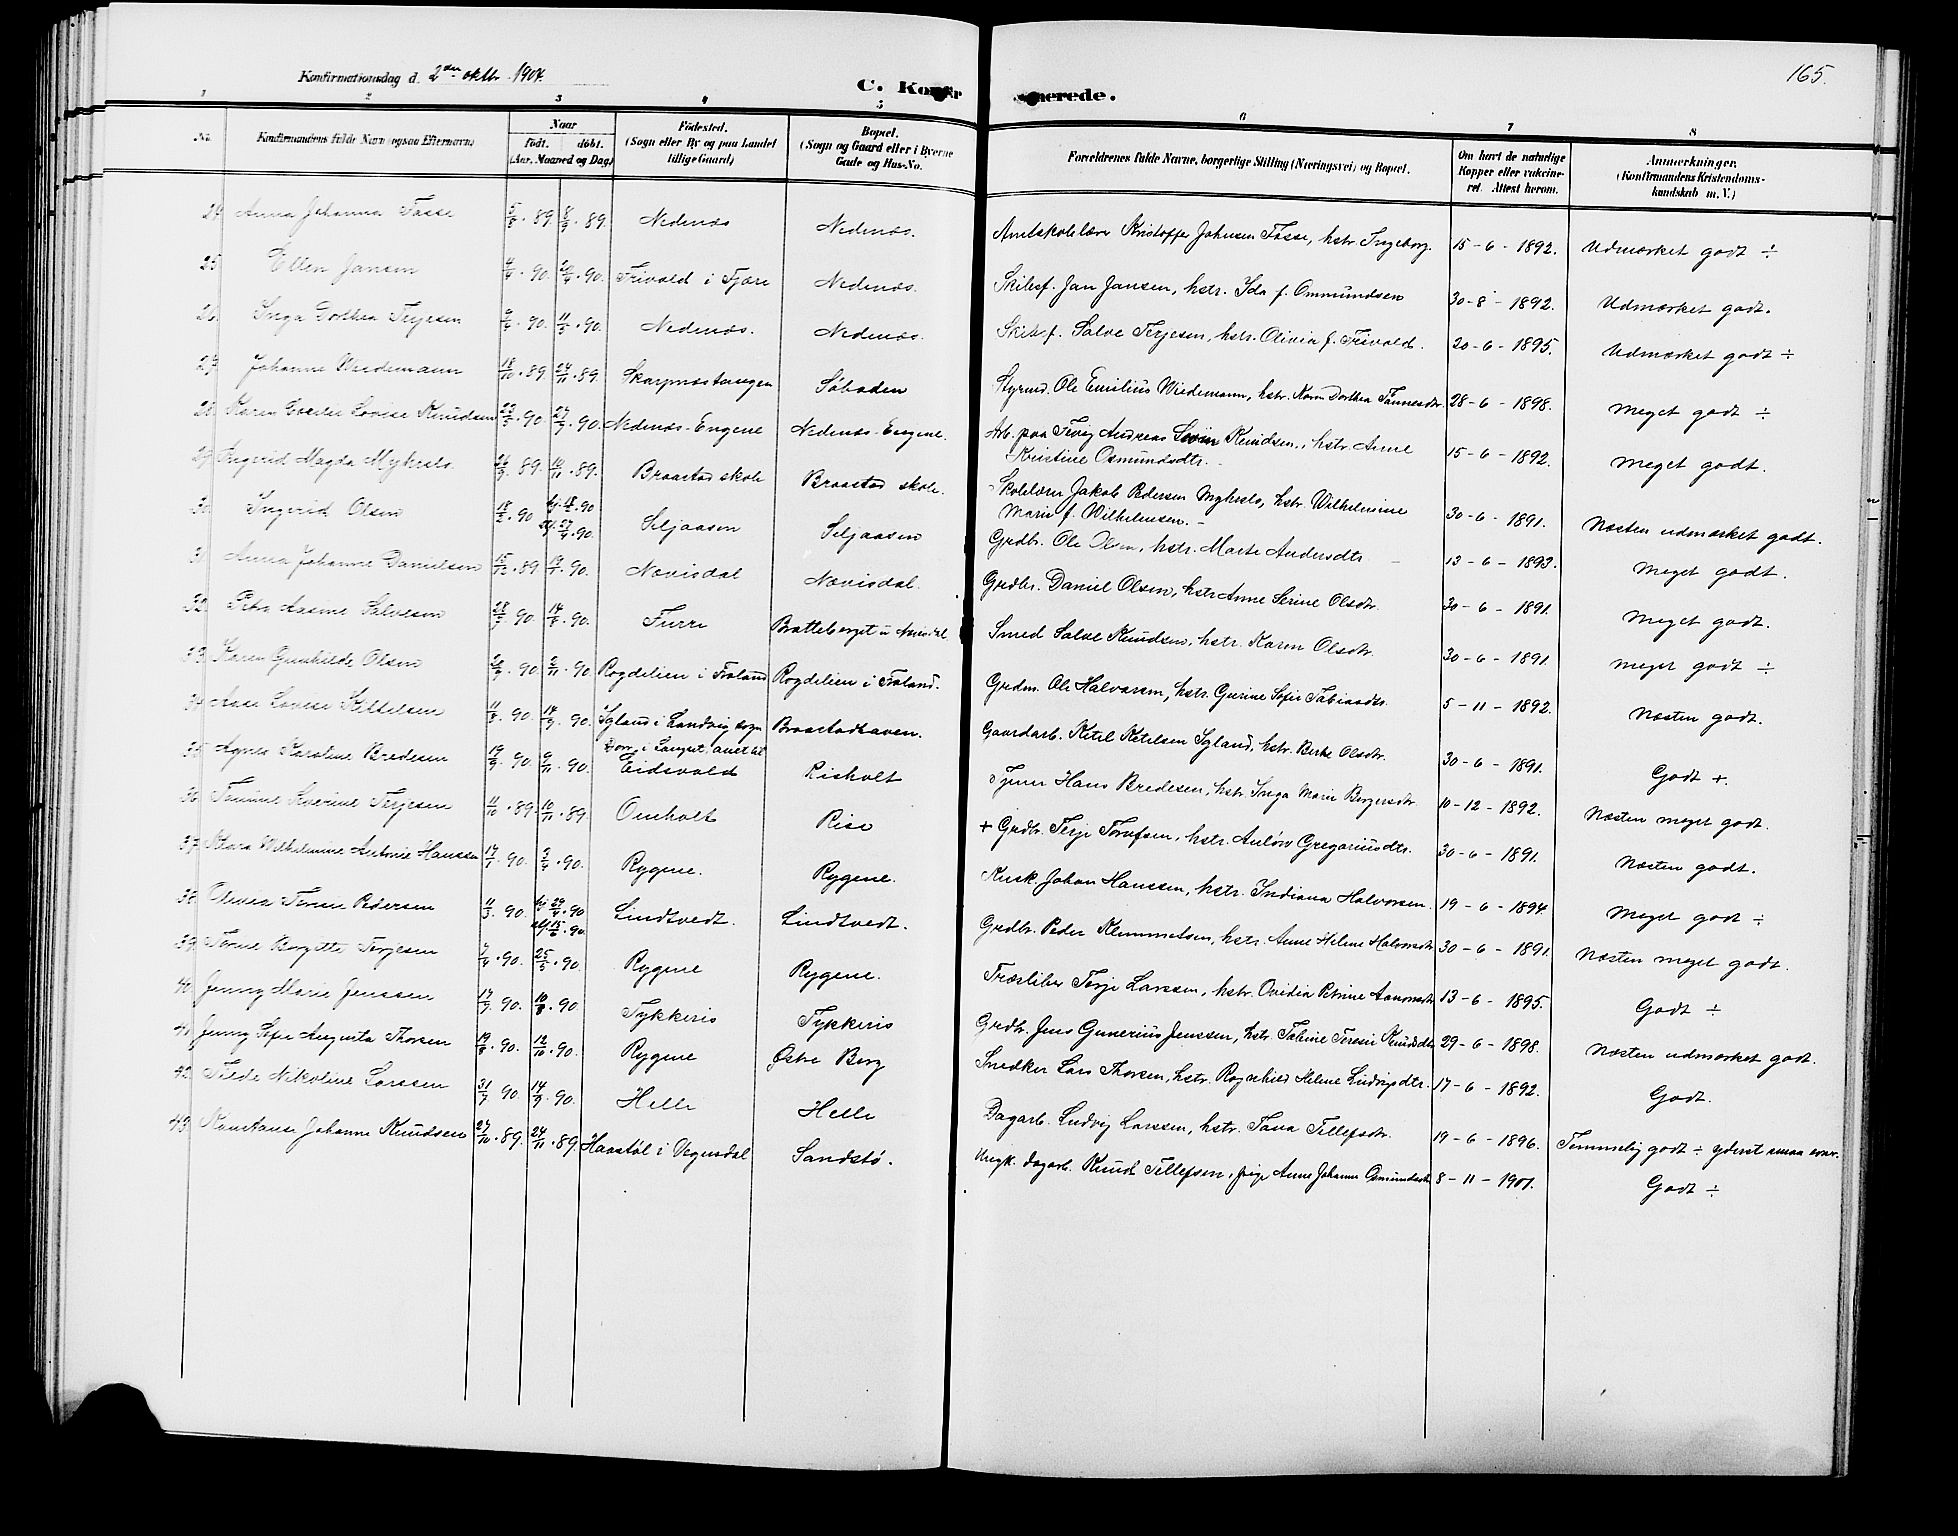 Konfirmationsdag d. 2den oktbr. 1904.
C. Konfir
merede.
165.
1 2 3 4 5 6 7 8
No.
Konfirmandens fulde Navn (ogsaa Efternavn)
Naar
født. døbt.
(Aar, Maaned og Dag)
Fødested.
(Sogn eller By og paa Landet
tillige Gaard)
Bopæl.
(Sogn og Gaard eller i Byerne
Gade og Hus-No.
Forældrenes fulde Navne, borgerlige Stilling (Næringsvei) og Bopæl.
Om havt de naturlige
Kopper eller vakcine-
ret. Attest herom.
Anmærkninger.
(Konfirmandens Kristendoms-
kundskab m. V.)
24 Anna Johanna Fosse 89 89. Nedenæs Nedenæs. Amtskolelærer Kristoffer Johnsen Fosse, hstr. Ingeborg. 15-6-1892. Udmærket godt ÷
25 Ellen Jansen 90. 90. Frivold i Fjære Nedenæs. Skibsf. Jan Jansen, hstr. Ida f. Ommundsen 30-8-1892. Udmærket godt.
26 Inga Dorthea Terjesen 90. 90. Nedenæs. Nedenæs. Skibsf. Salve Terjesen, hstr. Olivia f. Frivold. 20-6-1895. Udmærket godt ÷
27 Johanne Wiedemann 18/10 89. 24/11 89. Skarpnæstangen Søboden Styrmd. Ole Emilius Wiedemann, hstr. Karen Dorthea Tønnesdtr. 28-6-1898. Meget godt ÷
28. Karen Lovise Knudsen 90. 90. Nedenæs-Engene Nedenæs-Engene. Arb. paa Fevig Andreas Knudsen, hstr. Anne
Kristine Osmundsdtr. 15-6-1892. Meget godt.
29. Ingerid Magda Myhrslo. 89. 89. Braastad skole Braastad skole. Skolelærer Jakob Pedersen Myhrslo, hstr. Wilhelmine
Marie f. Wilhelmsen. 30-6-1891. Næsten udmærket godt.
30. Ingerid Olsen 18/2 90 90
90. Seljaasen Seljaasen Grdbr. Ole Olsen, hstr. Marte Andersdtr 13-6-1893. Meget godt.
31 Anna Johanne Danielsen 15/12 89 90. Nævisdal Nævisdal. Grdbr. Daniel Olsen, hstr Anne Serine Olsdtr. 30-6-1891. Meget godt.
32. Petra Aasine Salvesen 90. 90. Furre Bratteberget u. Smed Salve Knudsen, hstr. Karen Olsdtr. 30-6-1891. Meget godt ÷
33. Karen Gunhilde Olsen 90. 90. Rogdelien i Froland Rogdelien i Froland. Grdm. Ole Halvorsen, hstr. Gurine Sofie Tobiasdtr. 5-11-1892. Næsten godt.
34. Aase Lovise Kittelsen 90. 90. Igland i Landvig sogn Braastadhaven. Gaardarb. Ketil Ketilsen Igland, hstr. Olsdtr. 30-6-1891. Godt +
35. Agnes Karoline Bredesen 90. 90. Eidsvold Risholt Hans Bredesen, hstr. Inga Marie Birgersdtr. 10-12-1892. Næsten meget godt.
36. Tomine Severine Terjesen 11/10 89. 10/11 89. Omholt Rise + Grdbr. Terje Torufsen, hstr. Anlaug Gregoriusdtr. 30-6-1891. Næsten godt.
37. Klara Wilhelmine Antonie Hanssen 17/1 90. 90. Rygene. Rygene. Kusk Johan Hanssen, hstr. Indiana Halvorsen. 19-6-1894. Meget godt ÷
38. Olivia Torine Pedersen 11/3 90. 90
90. Lindtvedt. Lindtvedt. Grdbr. Peder Klemmetsen, hstr. Anne Helene Halvorsdtr. 30-6-1891. Næsten meget godt.
39. Torine Birgitte Terjesen 90. 25/5 90. Rygene Rygene. Træsliber Terje Larssen, hstr. Ovidia Petrine Aanonsdtr 13-6-1895. Godt ÷
40. Jenny Marie Jenssen 17/7 90. 90 Tykkeris Tykkeris Grdbr. Jens Gunerius Jenssen, hstr. Tabine Terese Knudsdtr. 29-6-1898. Næsten udmærket godt.
41. Jenny Sofie Augusta Thorsen 19/8 90. 12/10 90. Rygene Østre Berg Snedker Lars Thorsen, hstr. Ragnhild Helene Ludvigsdtr. 17-6-1892. Godt.
42. Tilde Nikoline Larssen 31/7 90. 14/9 90. Helle Helle Dagarb. Ludvig Larssen, hstr. Tana Tellefsdtr. 19-6-1896. Temmelig godt ÷ yderst smaa evner.
43. Konstanse Johanne Knudsen 27/10 89. 24/11 89. Haastøl i Vegusdal Sandstø. Ungk. dagarb. Knut Tellefsen, pige Anne Johanne Osmundsdtr. 8-11-1901. Godt ÷